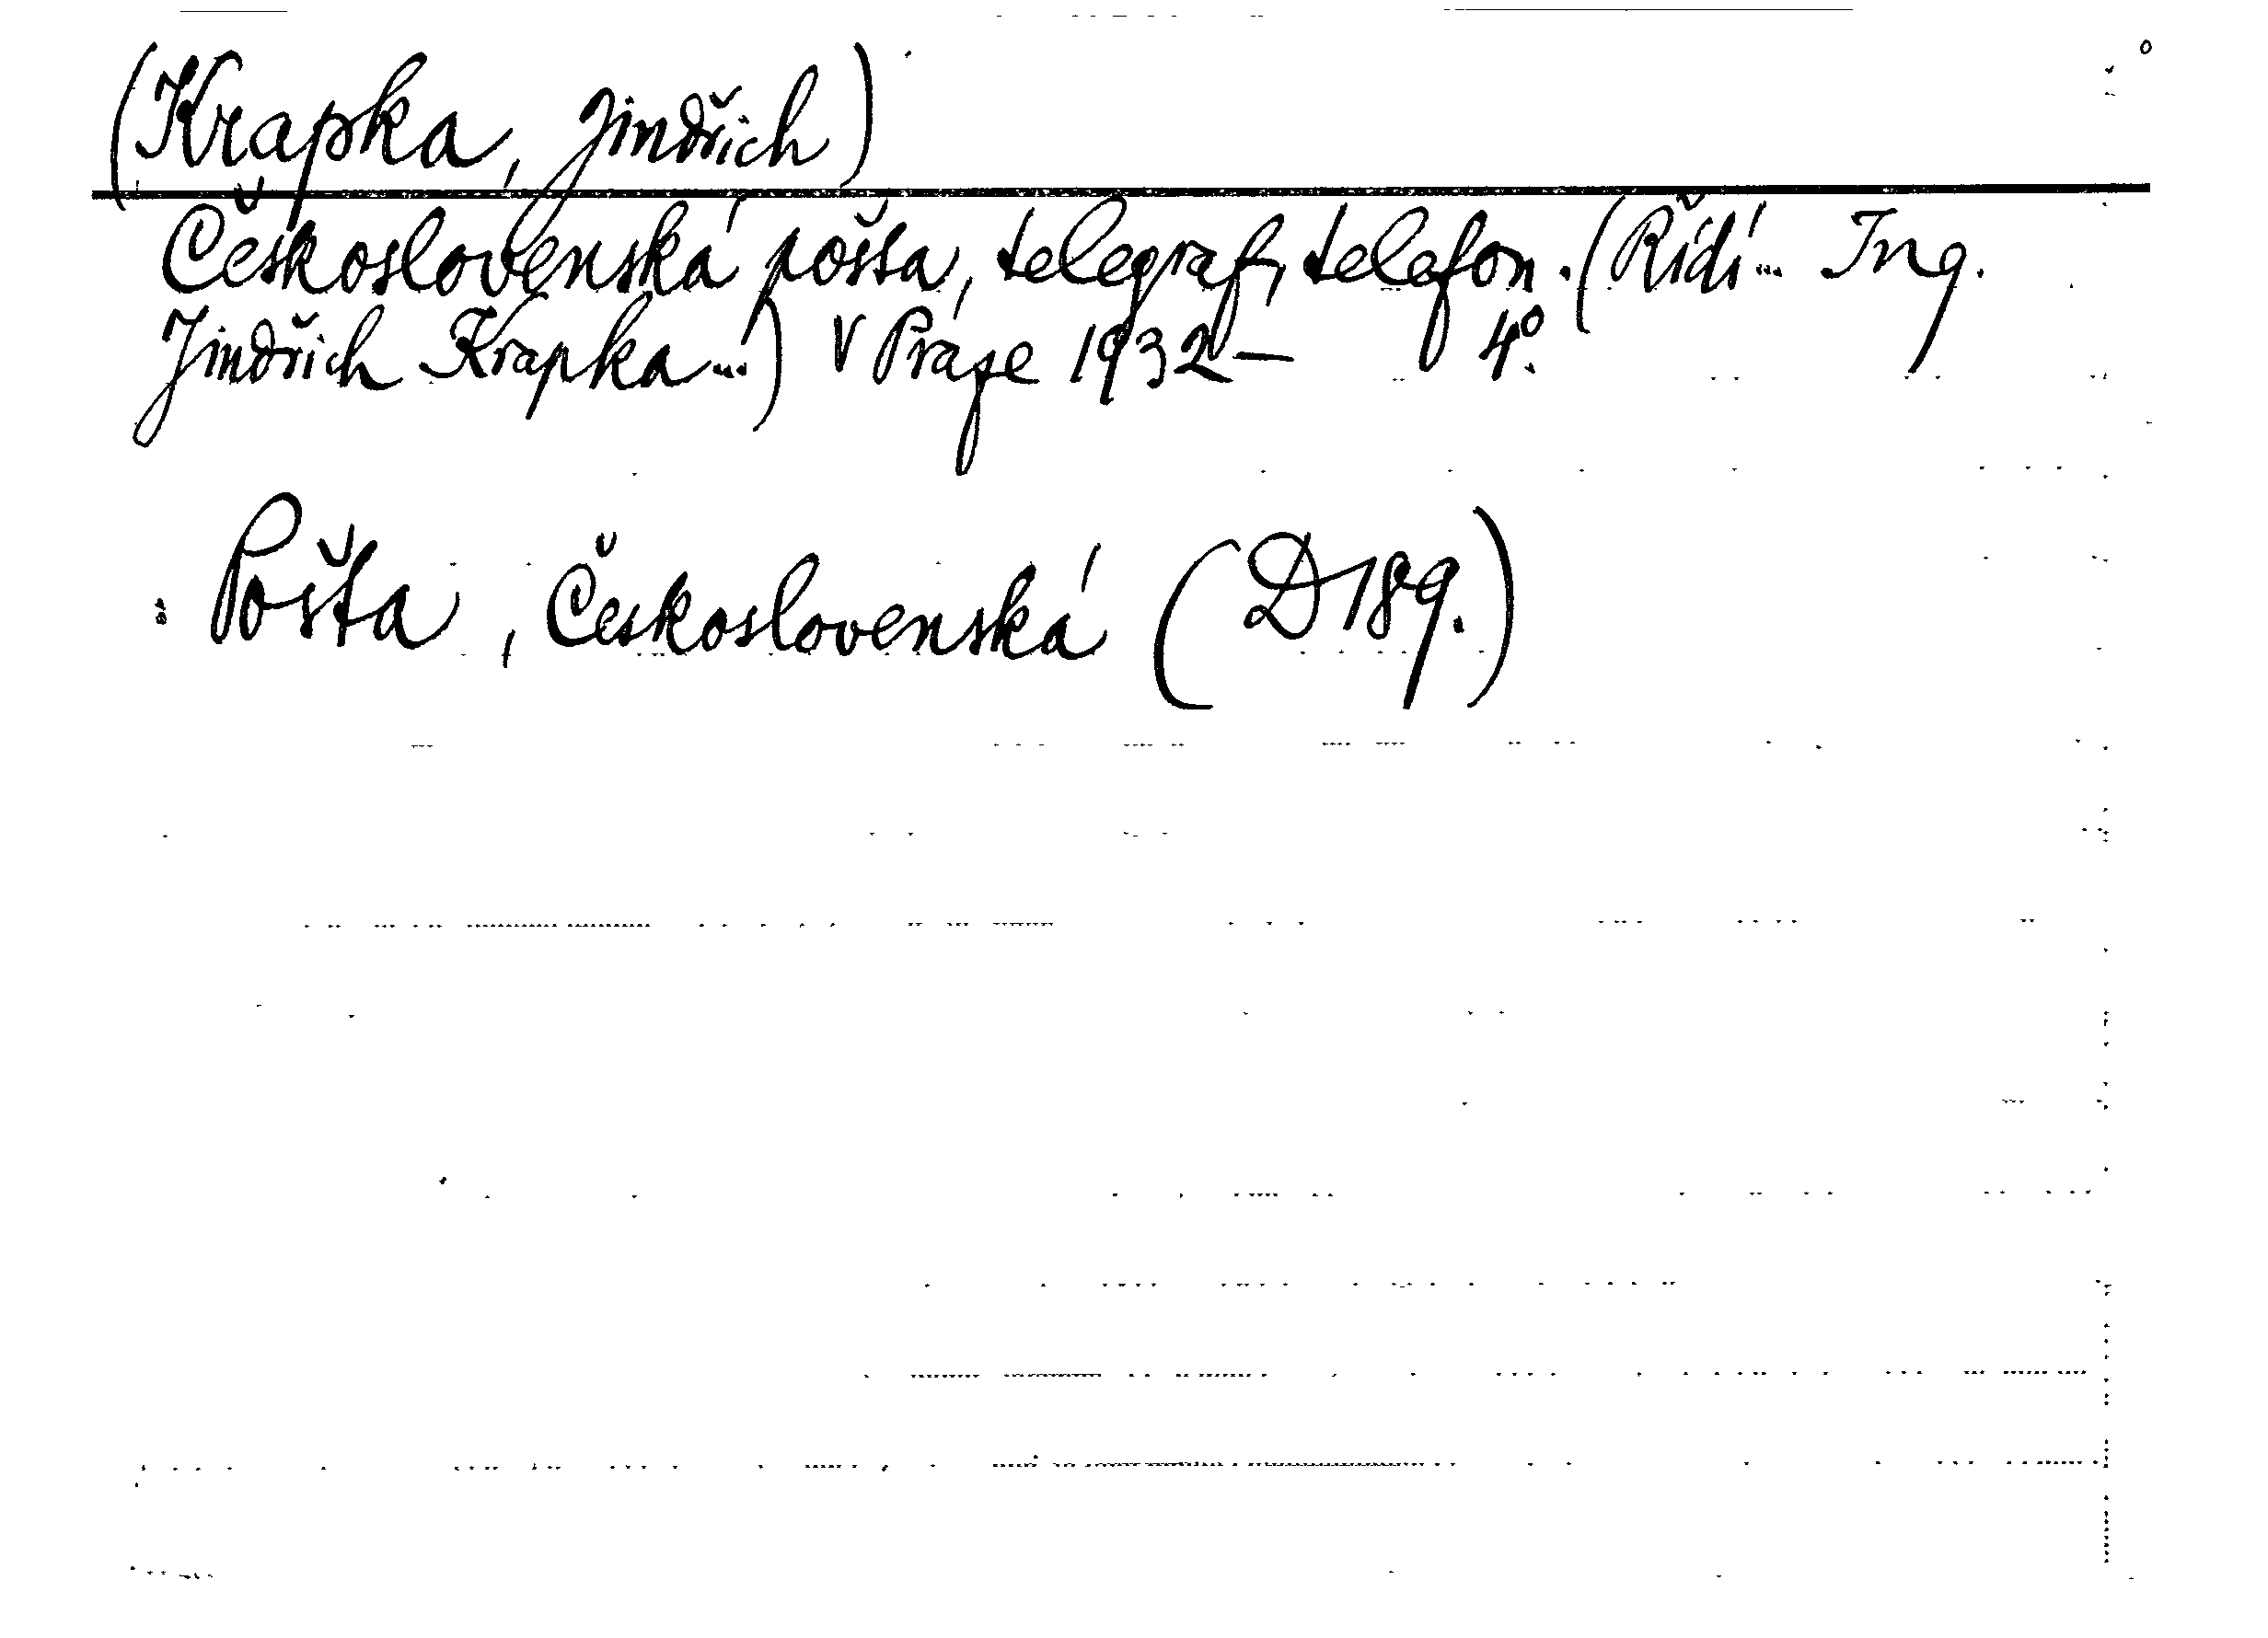 (Krapka, Jindřich)
Československá pošta, telegraf, telefon. (Řídí... Ing.
Jindřich Krapka...) V Praze 1932 — 4°.
Pošta, Československá (D 189.)